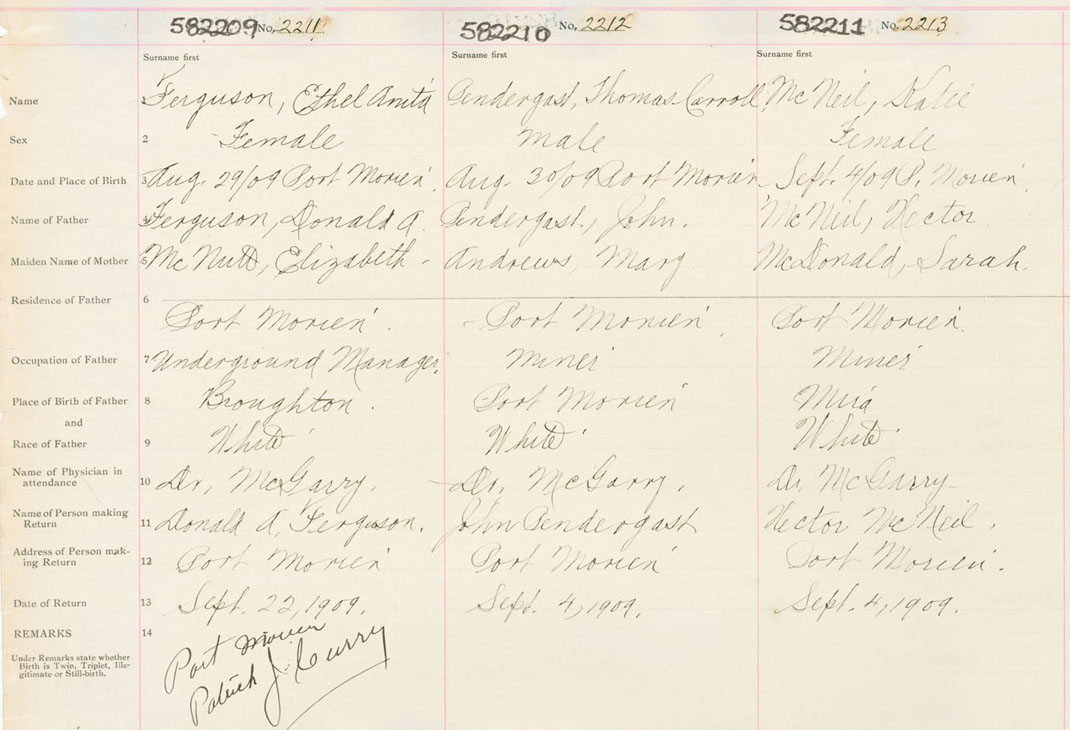 582209 No. 2211 582210 No. 2212 582211 No. 2213
Surname first Surname first Surname first
Name Ferguson, Ethel Anita Pendergast, Thomas Carroll McNeil, Katie
Sex 2 Female Male Female
Date and Place of Birth 3 Aug. 29/09 Port Morien Aug. 30/09 Port Morien Sept. 4/09 P. Morien
Name of Father Ferguson, Donald A. Pendergast, John. McNeil, Hector
Maiden Name of Mother 5 McNutt, Elizabeth Andrews, Mary McDonald, Sarah.
Residence of Father 6
Port Morien. Port Morien Port Morien
Occupation of Father 7 Underground Manager. Miner Miner
Place of Birth of Father 8 Broughton. Port Morien Mira
and
Race of Father 9 White White White
Name of Physician in
attendance 10 Dr. McGarry. Dr. McGarry. Dr. McGarry
Name of Person making
Return 11 Donald A. Ferguson. John Pendergast Hector McNeil.
Address of Person mak-
ing Return 12 Port Morien Port Morien Port Morien.
Date of Return 13 Sept. 22, 1909. Sept. 4, 1909. Sept. 4, 1909.
REMARKS 14
Under Remarks state whether
Birth is Twin, Triplet, Ille-
gitimate or Still-birth.
Port Morien
Patrick J. Curry